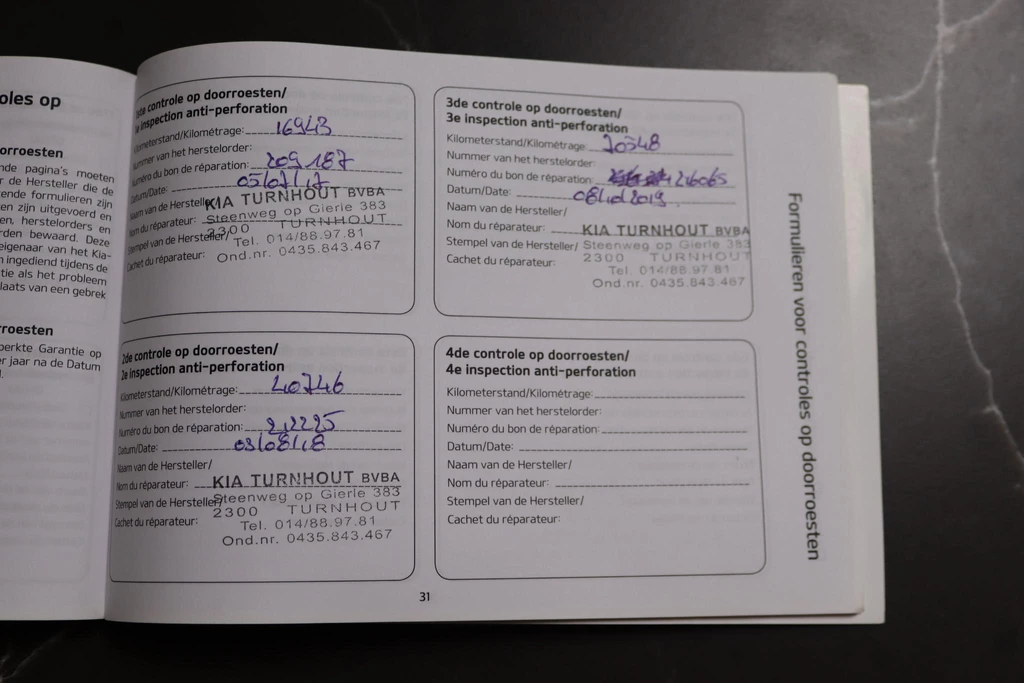 oles op
orroesten
nde pagina's moeten
r de Hersteller die de
ende formulieren zijn
en zijn uitgevoerd en
en, herstelorders en
rden bewaard. Deze
eigenaar van het Kia-
n ingediend tijdens de
tie als het probleem
laats van een gebrek
rroesten
perkte Garantie op
er jaar na de Datum
controle op doorroesten/
inspection anti-perforation
Kilometerstand/Kilométrage: 16943
Nummer van het herstelorder:
Numéro du bon de réparation: 209187
Datum/Date: 05/07/17
Naam van de Hersteller/
KIA TURNHOUT BVBA
Nom du réparateur: Steenweg op Gierle 383
2300 TURNHOUT
Stempel van de Hersteller/
Tel. 014/88.97.81
Cachet du réparateur: Ond.nr. 0435.843.467
2de controle op doorroesten/
2e inspection anti-perforation
Kilometerstand/Kilométrage: 40746
Nummer van het herstelorder:
Numéro du bon de réparation: 212225
Datum/Date: 03/08/18
Naam van de Hersteller/
Nom du réparateur: KIA TURNHOUT BVBA
Stempel van de Hersteller/ Steenweg op Gierle 383
2300 TURNHOUT
Cachet du réparateur: Tel. 014/88.97.81
Ond.nr. 0435.843.467
3de controle op doorroesten/
3e inspection anti-perforation
Kilometerstand/Kilométrage: 70548
Nummer van het herstelorder:
Numéro du bon de réparation: 216065
Datum/Date: 08/10/2019
Naam van de Hersteller/
Nom du réparateur: KIA TURNHOUT BVBA
Stempel van de Hersteller/ Steenweg op Gierle 383
Cachet du réparateur: 2300 TURNHOUT
Tel. 014/88.97.81
Ond.nr. 0435.843.467
4de controle op doorroesten/
4e inspection anti-perforation
Kilometerstand/Kilométrage:
Nummer van het herstelorder:
Numéro du bon de réparation:
Datum/Date:
Naam van de Hersteller/
Nom du réparateur:
Stempel van de Hersteller/
Cachet du réparateur:
Formulieren voor controles op doorroesten
31